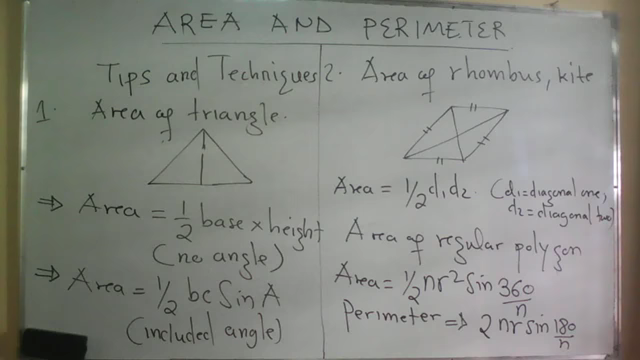 AREA AND PERIMETER
Tips and Techniques
1. Area of triangle.
⇒ Area = 1/2 base × height
(no angle)
⇒ Area = 1/2 bc Sin A
(included angle)
2. Area of rhombus, kite
Area = 1/2 d1d2. (d1=diagonal one,
d2=diagonal two)
Area of regular polygon
Area = 1/2 nr² Sin 360/n
Perimeter ⇒ 2nr sin 180/n